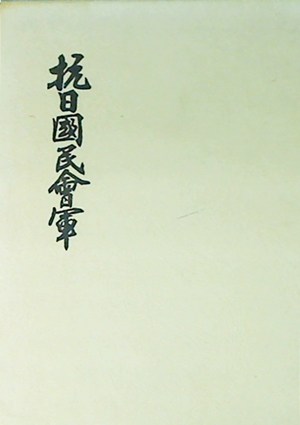 抗日國民會軍